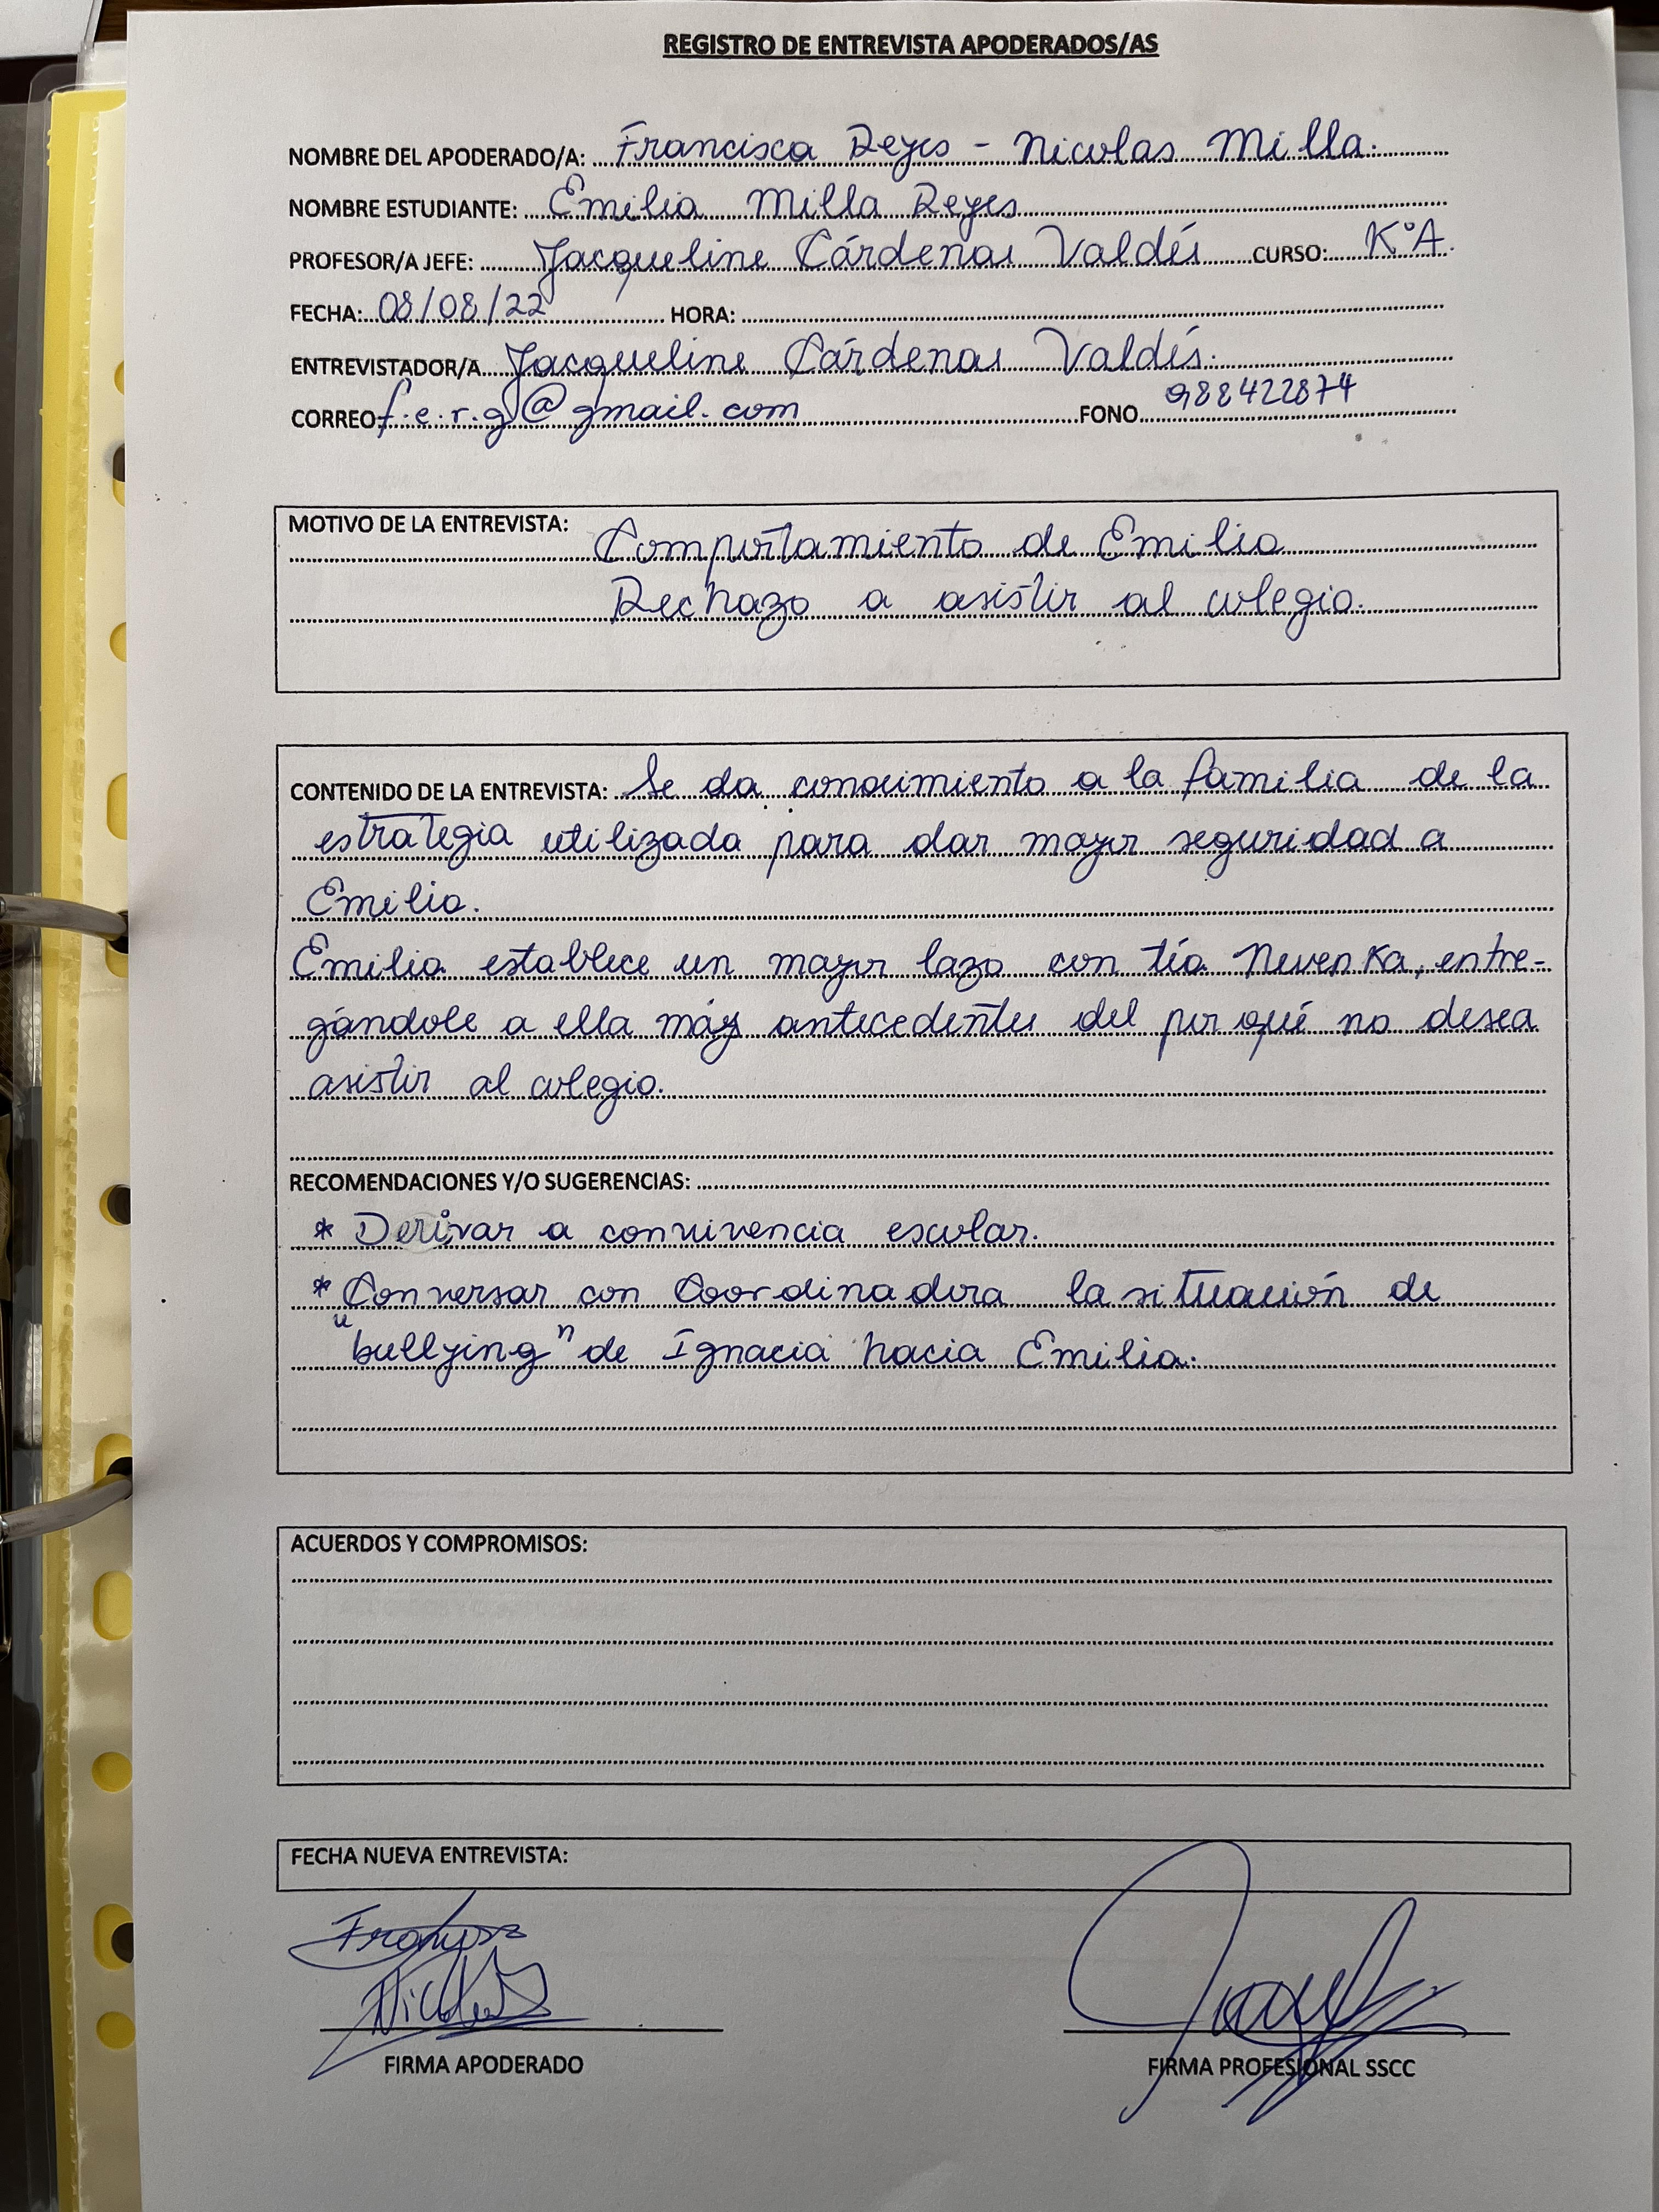 REGISTRO DE ENTREVISTA APODERADOS/AS
NOMBRE DEL APODERADO/A: Francisca Reyes - Nicolas Milla.
NOMBRE ESTUDIANTE: Emilia Milla Reyes
PROFESOR/A JEFE: Jacqueline Cárdenas Valdés CURSO: K°A.
FECHA: 08/08/22 HORA:
ENTREVISTADOR/A Jacqueline Cárdenas Valdés.
CORREO f.e.r.g@gmail.com FONO 988422874
MOTIVO DE LA ENTREVISTA: Comportamiento de Emilia
Rechazo a asistir al colegio.
CONTENIDO DE LA ENTREVISTA: Se da conocimiento a la familia de la
estrategia utilizada para dar mayor seguridad a
Emilia.
Emilia establece un mayor lazo con tía Nevenka, entre-
gándole a ella más antecedentes del por qué no desea
asistir al colegio.
RECOMENDACIONES Y/O SUGERENCIAS:
* Derivar a convivencia escolar.
* Conversar con Coordinadora la situación de
"bullying" de Ignacia hacia Emilia.
ACUERDOS Y COMPROMISOS:
FECHA NUEVA ENTREVISTA:
Nicolás
FIRMA APODERADO FIRMA PROFESIONAL SSCC